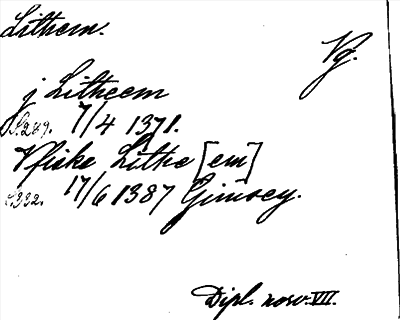 Lithem.
Vg.
j Litheem
S. 249. 7/4 1371.
Vfiske Lithe [em]
S. 332. 17/6 1387 Gimsey.
Dipl. norv. VII.